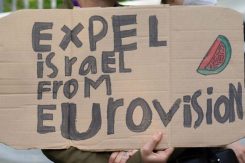 EXPEL
israel
FROM
EUrovisiON